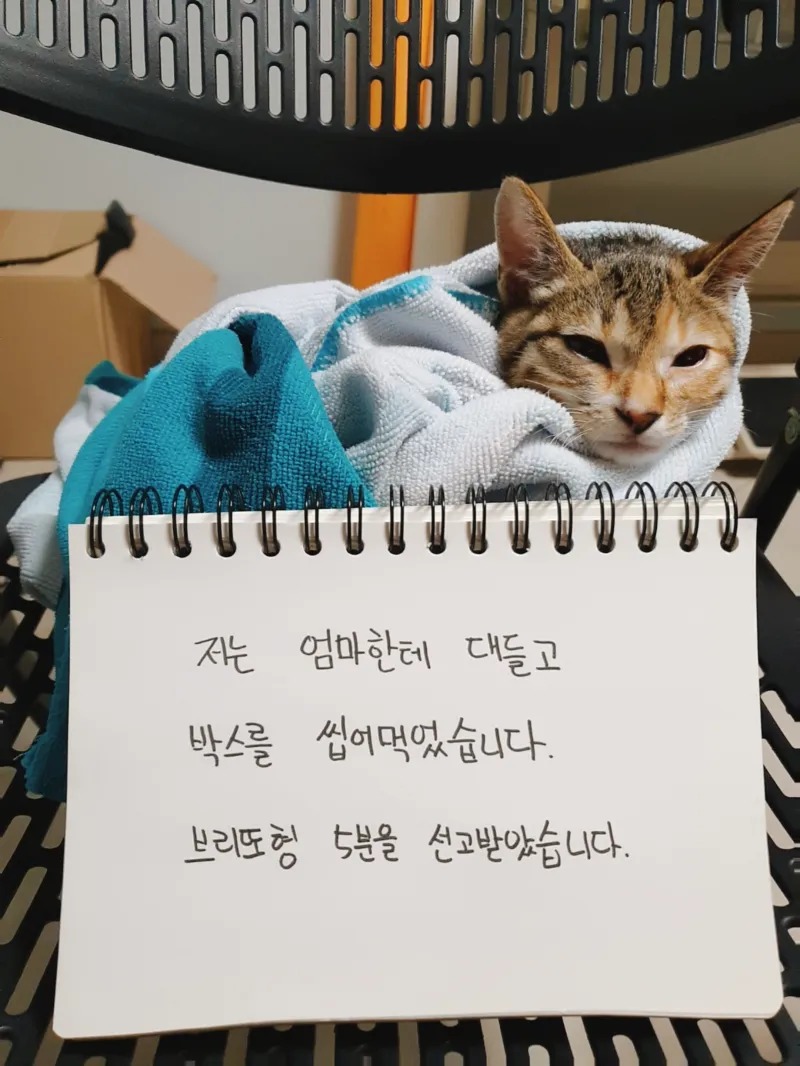 저는 엄마한테 대들고
박스를 씹어먹었습니다.
브리또형 5분을 선고받았습니다.